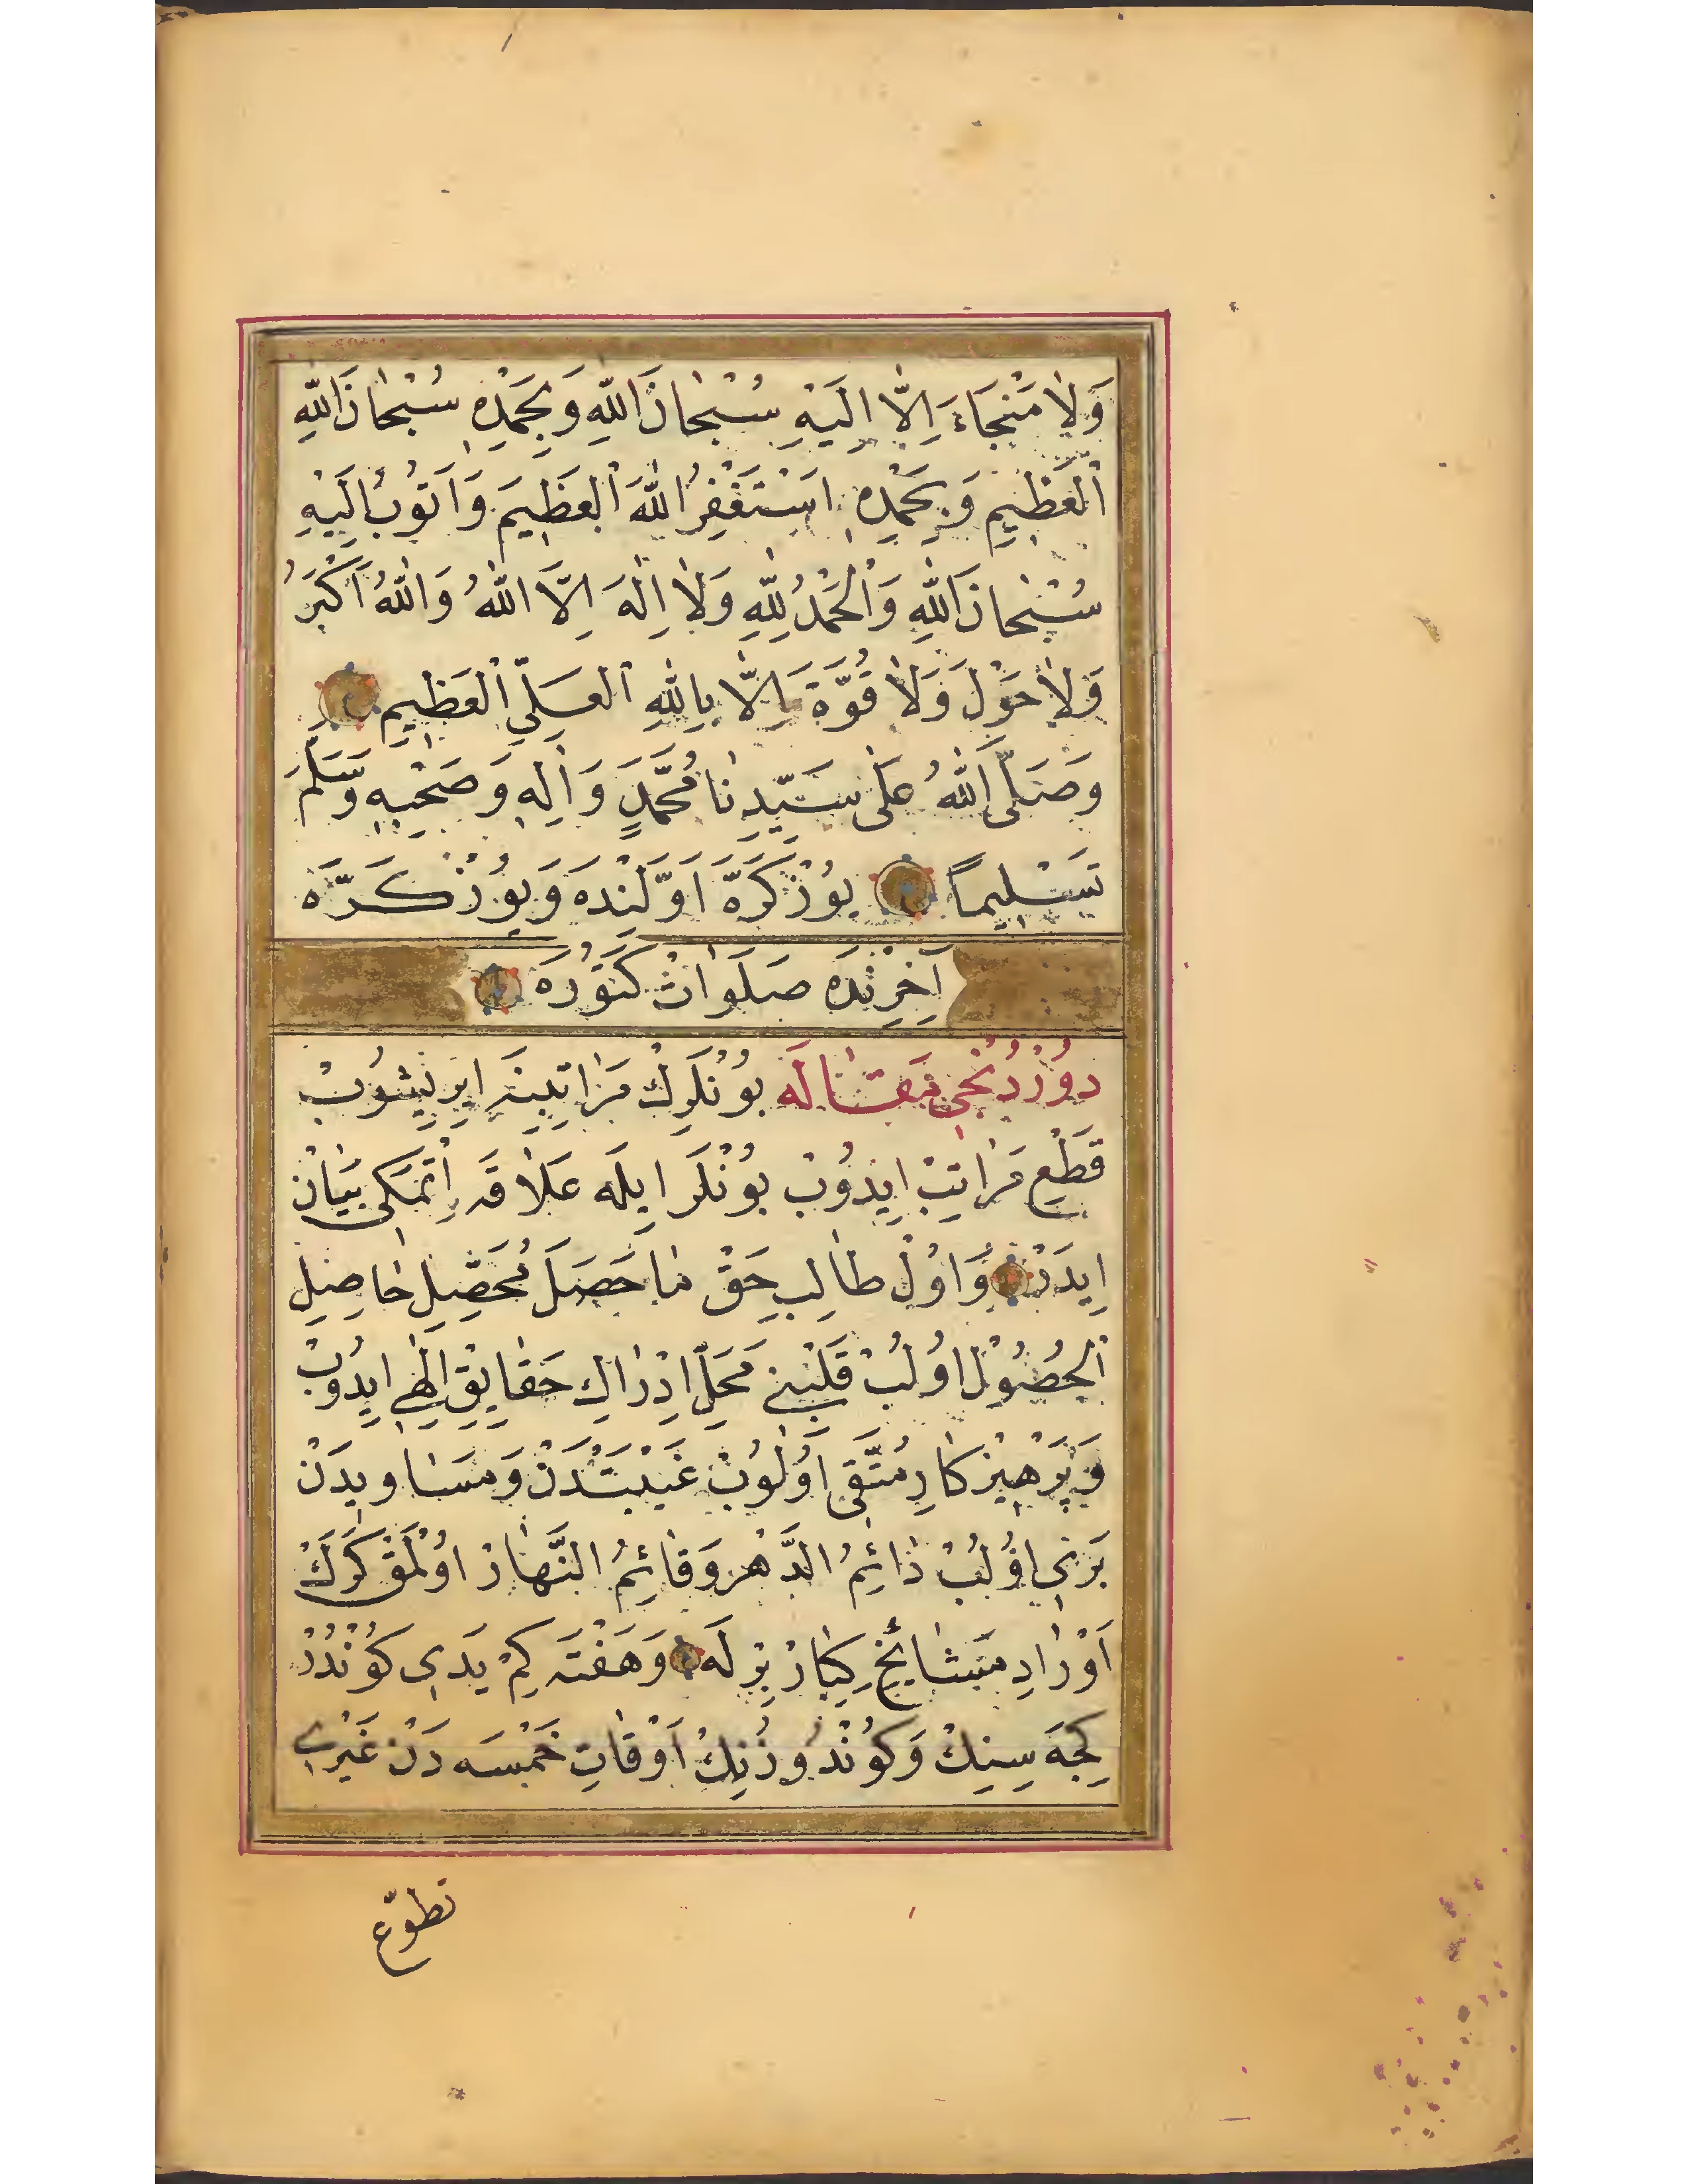 وَلَا مَنْجَاءَ اِلَّا اِلَيْهِ سُبْحَانَ اللّٰهِ وَبِحَمْدِهِ سُبْحَانَ اللّٰهِ
الْعَظِيمِ وَبِحَمْدِهِ اَسْتَغْفِرُ اللّٰهَ الْعَظِيمَ وَاَتُوبُ اِلَيْهِ
سُبْحَانَ اللّٰهِ وَالْحَمْدُ لِلّٰهِ وَلَا اِلٰهَ اِلَّا اللّٰهُ وَاللّٰهُ اَكْبَرُ
وَلَا حَوْلَ وَلَا قُوَّةَ اِلَّا بِاللّٰهِ الْعَلِيِّ الْعَظِيمِ
وَصَلَّى اللّٰهُ عَلٰى سَيِّدِنَا مُحَمَّدٍ وَاٰلِهِ وَصَحْبِهِ وَسَلَّمَ
تَسْلِيمًا يُوزْ كَرَّه اَوَّلِنْدَه وَيُوزْ كَرَّه
آخِرِنْدَه صَلَوَاتْ كَتُورَه
دُورْدُنْجِى مَقَالَه بُونْلَرِكْ مَرَاتِبِينَه اِيرِيشُوبْ
قَطْعِ مَرَاتِبْ اِيدُوبْ بُونْلَر اِيلَه عَلَاقَه اِتْمَكِى بَيَانْ
اِيدَرْ وَ اُولْ طَالِبِ حَقْ مَا حَصَلَ مُحَصِّلِ حَاصِلِ
الْحُصُولْ اُولُبْ قَلْبِنِى مَحَلِّ اِدْرَاكِ حَقَايِقِ اِلٰهِى اِيدُوبْ
وَپَرْهِيزْكَارِ مُتَّقِى اُولُوبْ غَيْبَتْدَنْ وَمَسَاوِيدَنْ
بَرِى اُولُبْ دَائِمُ الدَّهْر وَقَائِمُ النَّهَارْ اُولْمَقْ كَرَكْ
اَوْرَادِ مَشَايِخِ كِبَارْ بِرْلَه وَهَفْتَه كِمْ يَدِى كُونْدُرْ
كِجَه سِينِكْ وَكُونْدُوزُنِكْ اَوْقَاتِ خَمْسَه دَنْ غَيْرِى
تطوّع